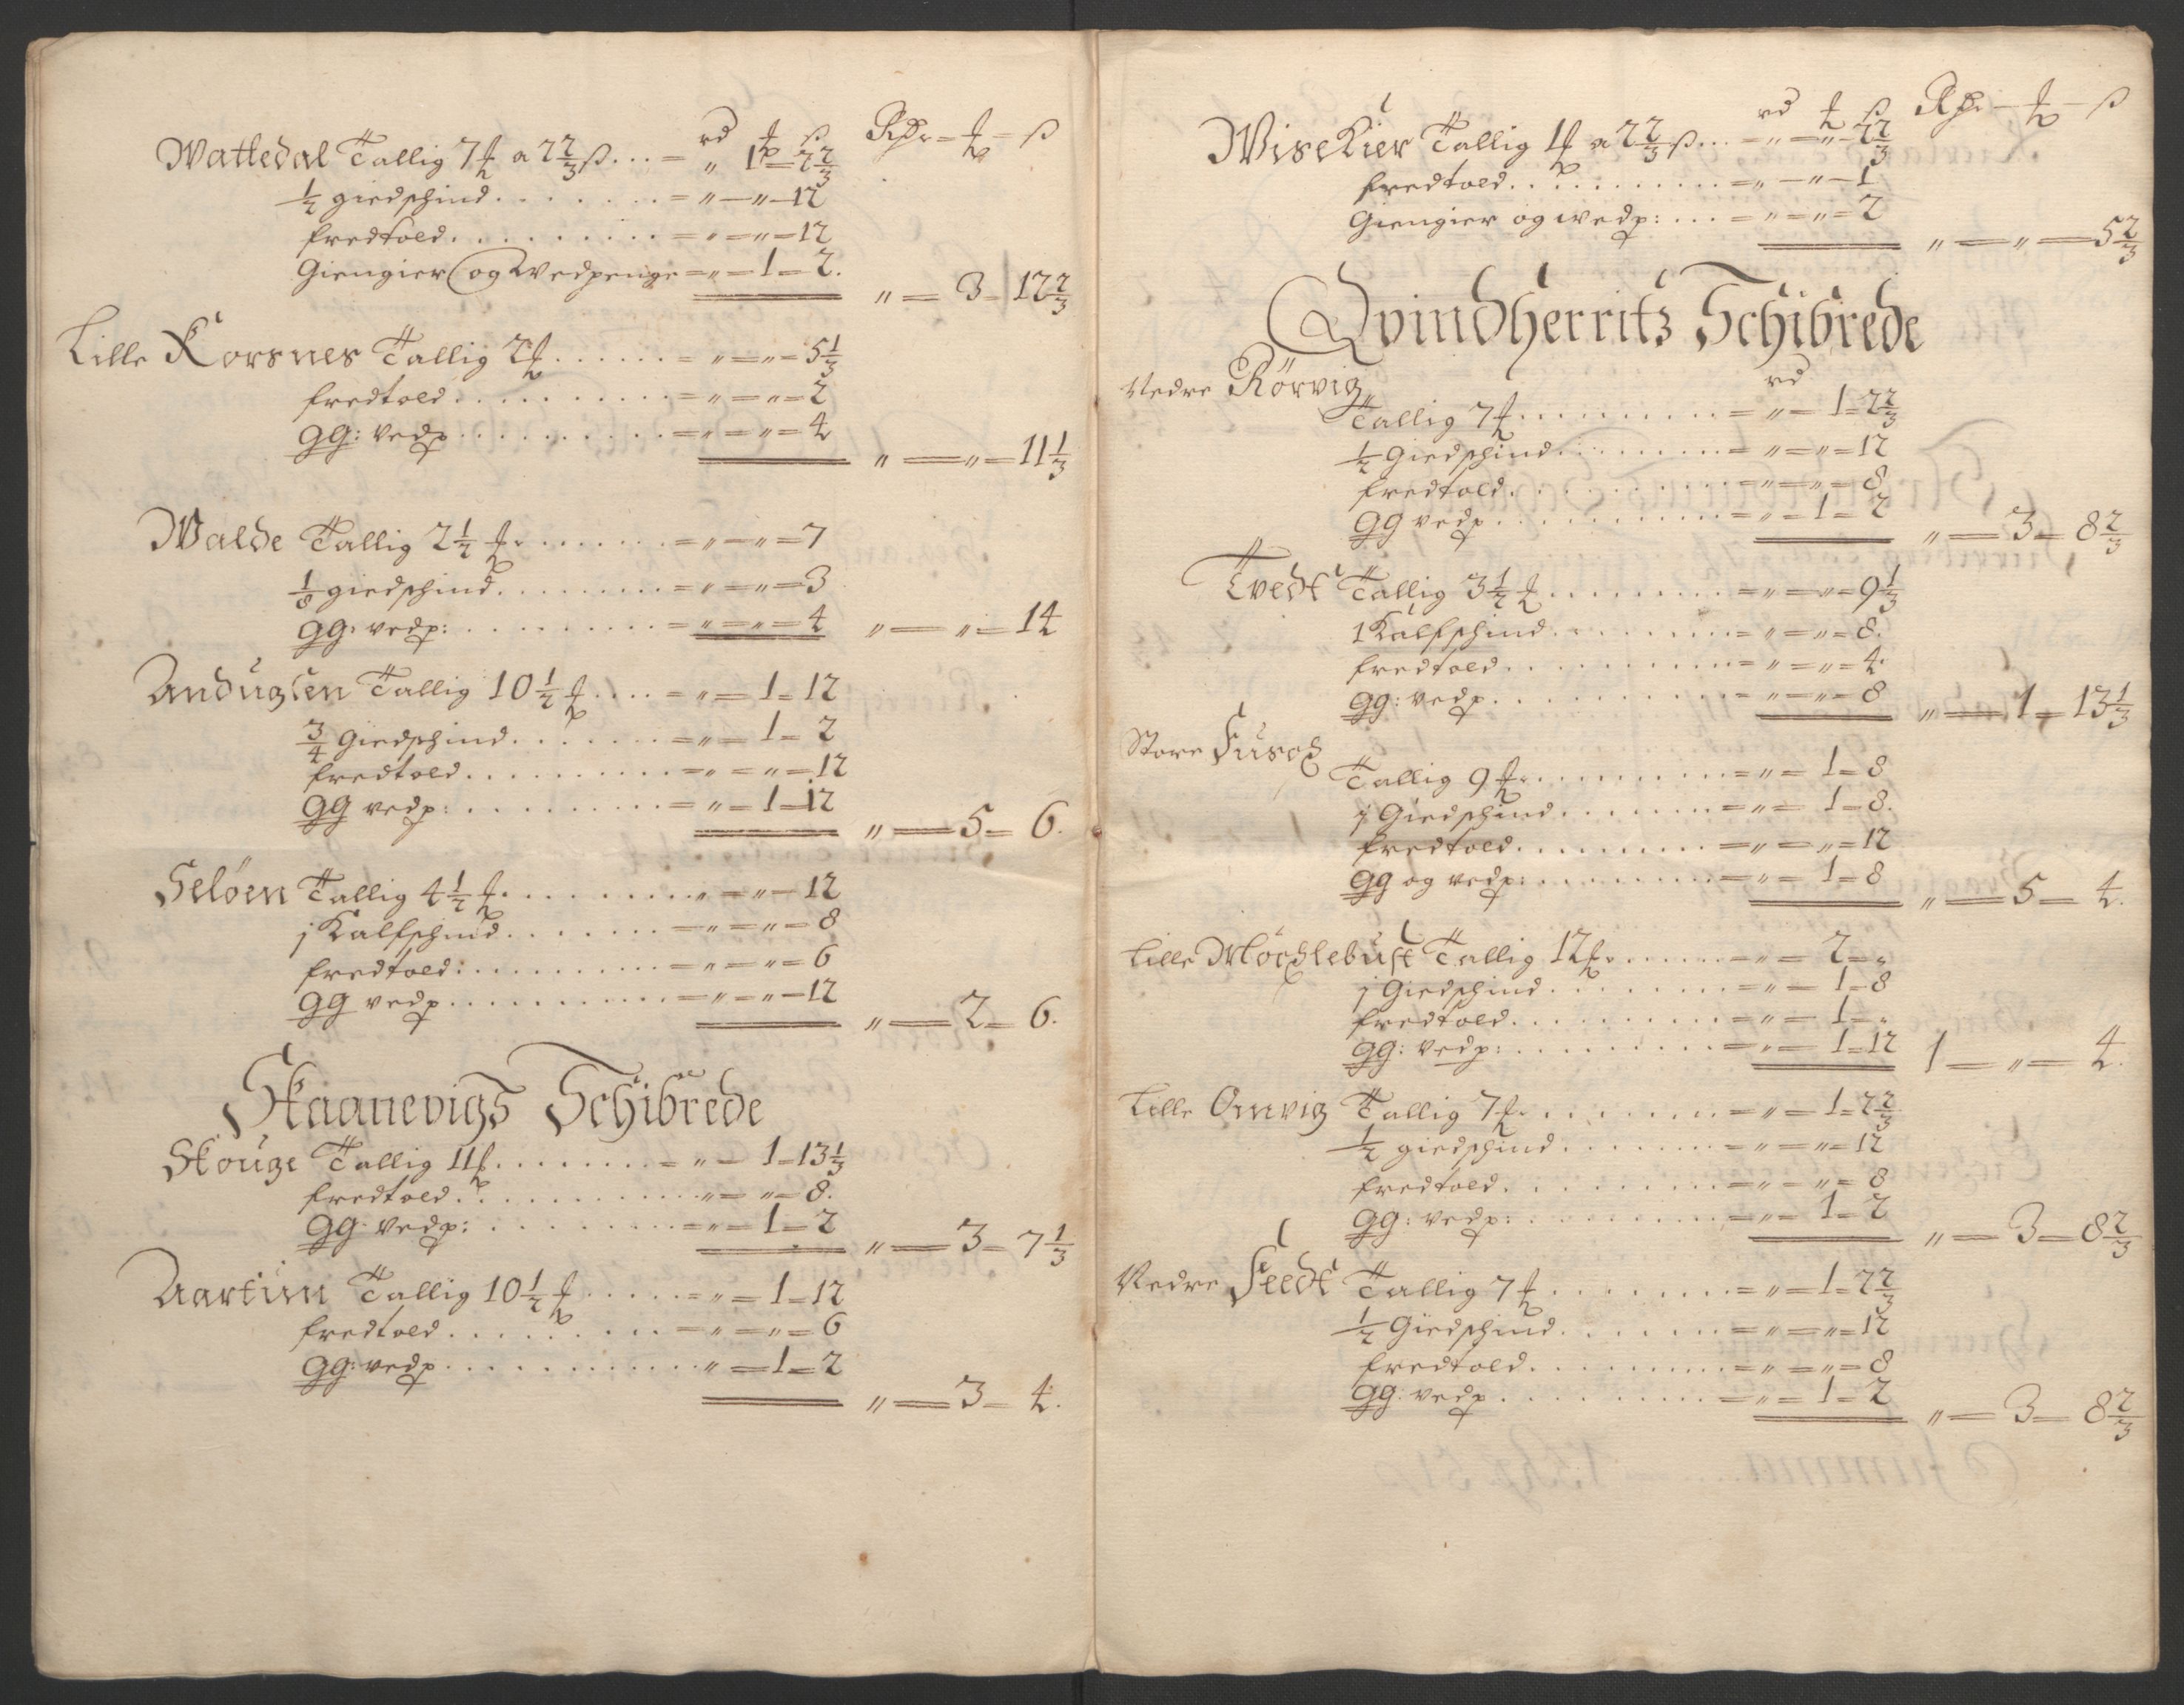 rd ℔ ß Rdr = ℔ = ß
Watledal Tallig 7 ℔ a 2 2/3 ß . . . = „ 1 = 2 2/3
1/2 giedschind . . . . . . . = „ — „ — 12
fredtold . . . . . . . . . = „ = „ = 12
Giengier og Wedpenge = „ = 1 = 2.
„ = 3 = 12 2/3
Lille Korsnes Tallig 2 ℔ . . . . . . = „ = „ = 5 1/3
fredtold . . . . . . . . . = „ = „ = 2
GG: vedp . . . . . . . . . = „ = „ = 4
„ = „ = 11 1/3
Walde Tallig 2 1/2 ℔ . . . . . . . = „ = „ = 7
1/8 giedschind . . . . . . . . = „ = „ = 3
GG: vedp: . . . . . . . . . = „ = „ = 4 „ = „ = 14
Anduglen Tallig 10 1/2 ℔ . . . . = „ = 1 = 12
3/4 Giedschind . . . . . . . = „ = 1 = 2
fredtold . . . . . . . . . . = „ = „ = 12
GG vedp: . . . . . . . . . = „ = 1 = 12
„ = 5 = 6.
Selöen Tallig 4 1/2 ℔ . . . . . . . . . „ = „ = 12
j Kalfschind . . . . . . . = „ = „ = 8
fredtold: . . . . . . . . . = „ = „ = 6
GG vedp . . . . . . . . . . = „ = „ = 12
„ = 2 = 6.
Skaanevigs Schibrede
Skouge Tallig 11 ℔ . . . . . . . . = „ = 1 = 13 1/3
fredtold . . . . . . . . . . „ = „ = 8.
GG vedp: . . . . . . . . = „ = 1 = 2
„ = 3 = 7 1/3
Aartun Tallig 10 1/2 ℔ . . . . . = „ = 1 = 12
fredtold . . . . . . . . . = „ = „ = 6
GG: vedp . . . . . . . . . . . „ = 1 = 2
„ = 3 = 4.
rd ℔ ß Rdr — ℔ — ß
Wisekier Tallig 1 ℔ a 2 2/3 ß . . . = „ = „ = 2 2/3
fredtold . . . . . . . . . . = „ — „ — 1
Giengier og wedp: . . . = „ = „ = 2
„ — „ — 5 2/3
Qvindherritz Schibrede
rd
Nedre Rörvig
Tallig 7 ℔ . . . . . . . . . . = „ = 1 = 2 2/3
1/2 Giedschind . . . . . . . . . = „ = „ = 12
fredtold . . . . . . . . . . = „ = „ = 8
GG vedp . . . . . . . . . . . = „ = 1 = 2
„ = 3 = 8 2/3
Tvedt Tallig 3 1/2 ℔ . . . . . . . . . = „ = „ = 9 1/3
1 Kalfschind . . . . . . . . . = „ = „ = 8.
fredtold . . . . . . . . . . . = „ = „ = 4.
GG: vedp . . . . . . . . . . . = „ = „ = 8
„ = 1 = 13 1/3
Store Fusog
Tallig 9 ℔ . . . . . . . . . . = „ = 1 = 8
j Giedschind . . . . . . . . . = „ = 1 = 8.
fredtold . . . . . . . . . . . = „ = „ = 12
GG og vedp: . . . . . . . . . = „ = 1 = 8
„ = 5 = 4.
Lille Möchlebust Tallig 12 ℔ . . . . . . = „ = 2 = „
j Giedschind . . . . . . . . . = „ = 1 = 8
fredtold . . . . . . . . . . . = „ = 1 = „
GG: vedp: . . . . . . . . . . = „ = 1 = 12
1 = „ = 4.
Lille Omvig Tallig 7 ℔ . . . . . . . . . = „ = 1 = 2 2/3
1/2 giedschind . . . . . . . . = „ = „ = 12
fredtold . . . . . . . . . . . = „ = „ = 8
GG: vedp: . . . . . . . . . . = „ = 1 = 2
„ = 3 = 8 2/3
Nedre Feedt Tallig 7 ℔ . . . . . . . . . = „ = 1 = 2 2/3
1/2 Giedschind . . . . . . . . = „ = „ = 12
fredtold . . . . . . . . . . = „ = „ = 8
GG: vedp . . . . . . . . . . = „ = 1 = 2
„ = 3 = 8 2/3